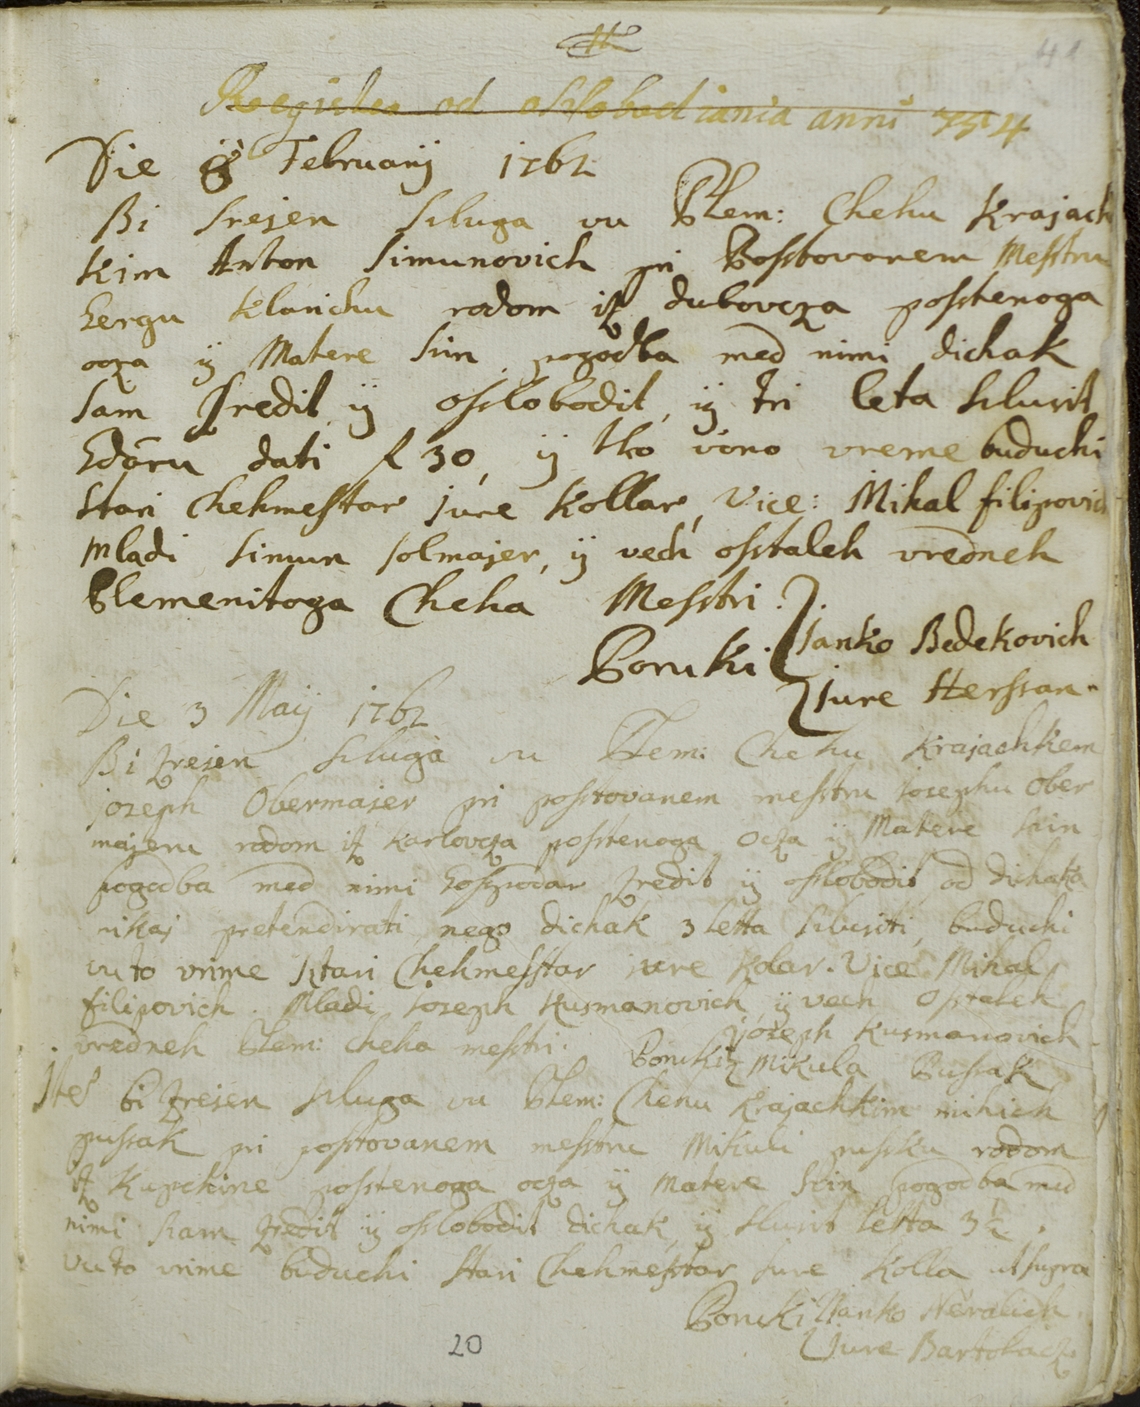 41
Register od osslobodiania anni 7514
Die 8 Februarij 1762
Bi srejen sluga vu Plem: Chehu Krajach
kim Anton Simunovich pri Posstovanem Messtru
Gergu Klanichu rodom iz dubovcza posstenoga
ocza ÿ Matere sin, pogodba med nimi dichak
sam zredit, ÿ osslobodit, ÿ tri leta slusit
dati f. 30, ÿ vono vreme buduchi
Stari Chehmestar Jure Kollar, Vice: Mihal filipovich
mladi Simun Solmajer, ÿ vech osstaleh vredneh
Plemenitoga Cheha Messtri.
Poruki Janko Bedekovich
Jure Herssan.
Die 3 Maij 1762
Bi zrejen sluga vu Plem: Chehu Krajachkem
Joseph Obermajer pri posstovanem messtru Josephu Ober
majeru rodom iz Karlovcza posstenoga Ocza ÿ Matere sin
pogodba med nimi Gosspodar zredit ÿ osslobodit od dichaka
nikaj pretendirati, nego dichak 3 letta slusiti, buduchi
vu to vrime sztari Chehmesstar jure Kolar. Vice Mihal
filipovich. Mladi Joseph Kusmanovich, ÿ vech Ostaleh
vredneh Plem: Cheha messtri. Poruki Joseph Kusmanovich
Mikula Pussak
Ite bi zrejen sluga vu Plem: Chehu Krajachkim mihich
pussak pri posstovanem messtru Mikuli pussku rodom
iz Kupchine posstenoga ocza ÿ Matere sin pogodba med
nimi sam zredit ÿ osslobodit dichak, ÿ slusit letta 3½.
vu to vrime buduchi Stari Chehmesstar Jure Kolla ut supra
Poruki Janko Neralich
Jure Bartolacz
20